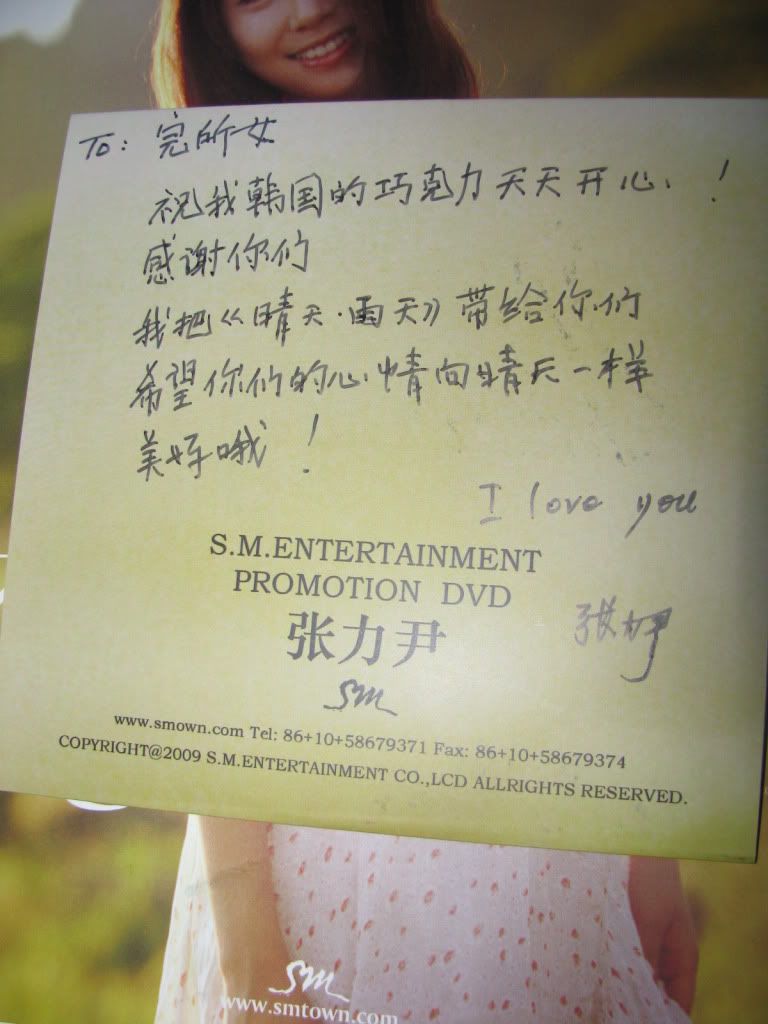 To: 完所女
祝我韩国的巧克力天天开心!
感谢你们
我把《晴天·雨天》带给你们
希望你们的心情向晴天一样
美好哦!
I love you
S.M.ENTERTAINMENT
PROMOTION DVD
张力尹
张力尹
SM
www.smown.com Tel: 86+10+58679371 Fax: 86+10+58679374
COPYRIGHT@2009 S.M.ENTERTAINMENT CO.,LCD ALLRIGHTS RESERVED.
SM
www.smtown.com